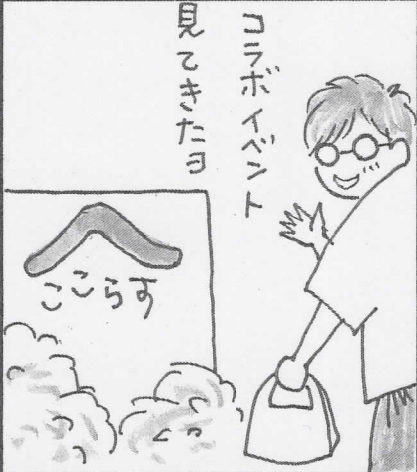 コラボイベント
見てきたヨ
ここらす